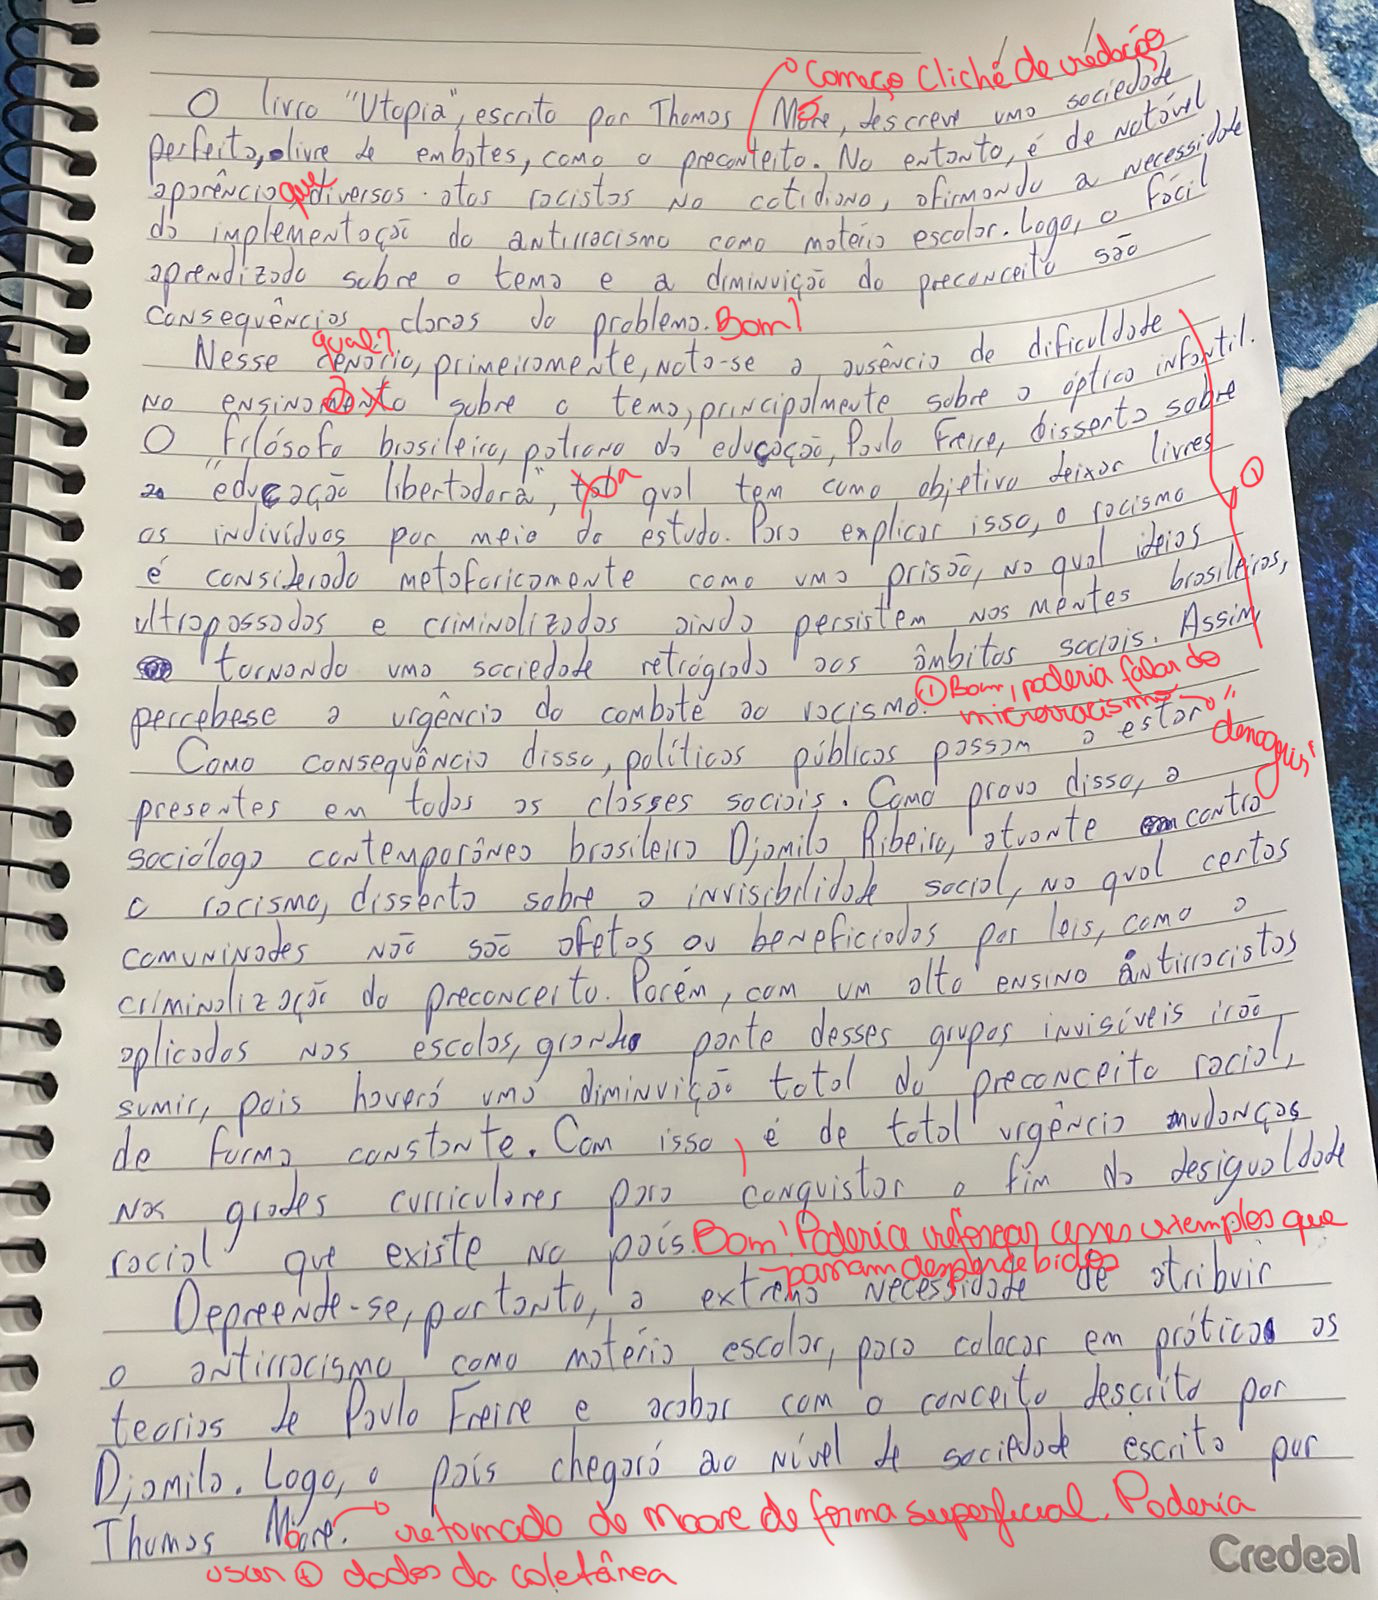 Começo Clichê de redação
O livro "Utopia", escrito por Thomas More, descreve uma sociedade
perfeita, livre de embates, como o preconteito. No entanto, é de notóvel
aparência que diversos atos racistas no cotidiano, afirmando a necessidade
da implementação do antirracismo como matéria escolar. Logo, o fácil
aprendizado sobre o tema e a diminuição do preconceito são
consequências claras do problema. Bom!
qual?
Nesse cenário, primeiramente, nota-se a ausência de dificuldade
no ensinamento sobre o tema, principalmente sobre a óptica infantil.
O filósofo brasileiro, patrono da educação, Paulo Freire, disserta sobre
a "educação libertadora", a qual tem como objetivo deixar livres
os indivíduos por meio do estudo. Para explicar isso, o racismo
é considerado metaforicamente como uma prisão, na qual ideias
ultrapassadas e criminalizadas ainda persistem nas mentes brasileiras,
tornando uma sociedade retrógrada aos âmbitos sociais. Assim,
percebese a urgência do combate ao racismo.
① Bom, poderia falar do
microrracismo "denegrir"
Como consequência disso, políticas públicas passam a estar
presentes em todas as classes sociais. Como prova disso, a
socióloga contemporânea brasileira Djamila Ribeiro, atuante contra
o racismo, disserta sobre a invisibilidade social, na qual certas
comuninades não são afetas ou beneficiadas por leis, como a
criminalização do preconceito. Porém, com um alto ensino antirracistas
aplicados nas escolas, grande parte desses grupos invisíveis irão
sumir, pois haverá uma diminuição total do preconceito racial,
de forma constante. Com isso, é de total urgência mudanças
nas grades curriculares para conquistar o fim da desigualdade
racial que existe no país. Bom! Poderia reforçar esses exemplos que
passam despercebidos
Depreende-se, portanto, a extrema necessidade de atribuir
o antirracismo como matéria escolar, para colocar em prática as
teorias de Paulo Freire e acabar com o conceito descrito por
Djamila. Logo, o país chegará ao nível de sociedade escrito por
Thomas Moore. retomado do Moore de forma superficial. Poderia
usar + dados da coletânea
Credeal